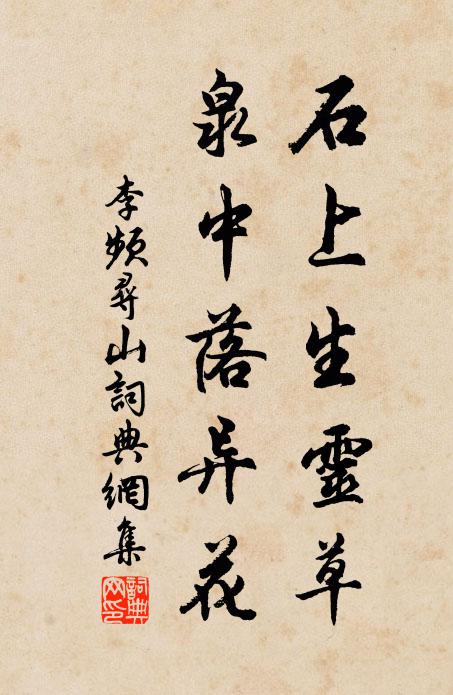 石上生靈草
泉中落异花
李頻尋山詞典網集
詞典
网印